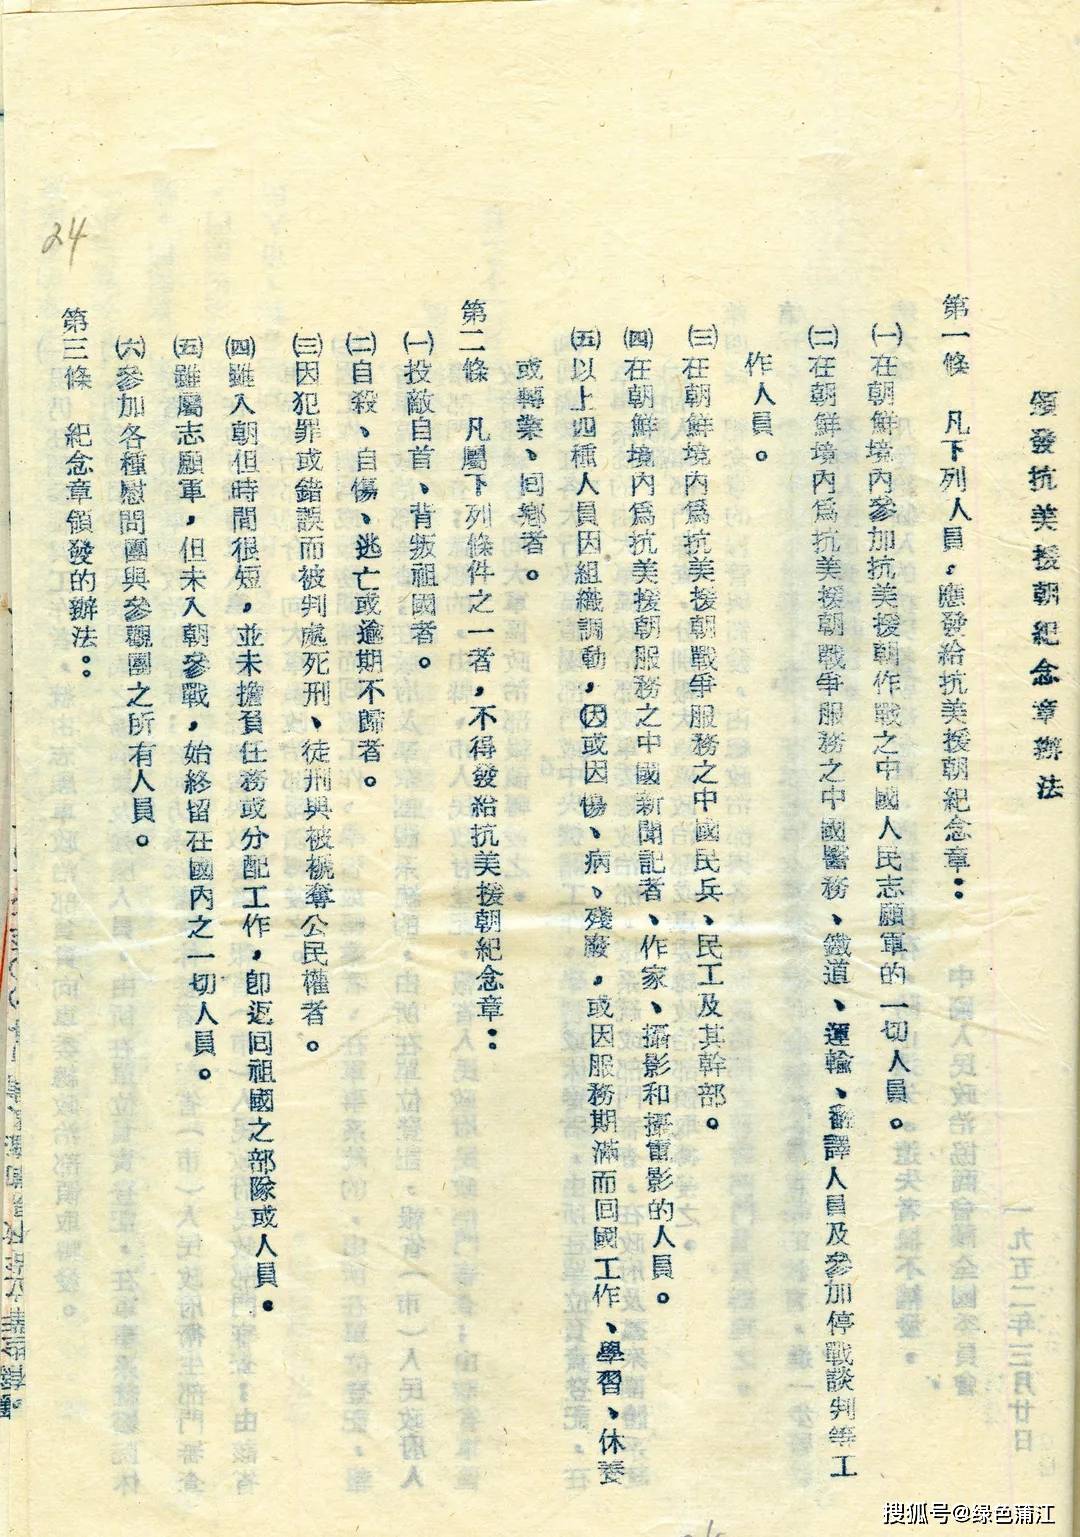 頒發抗美援朝紀念章辦法
第一條　凡下列人員，應發給抗美援朝紀念章：
㈠在朝鮮境內參加抗美援朝作戰之中國人民志願軍的一切人員。
㈡在朝鮮境內爲抗美援朝戰爭服務之中國醫務、鐵道、運輸、翻譯人員及參加停戰談判等工
作人員。
㈢在朝鮮境內爲抗美援朝戰爭服務之中國民兵、民工及其幹部。
㈣在朝鮮境內爲抗美援朝服務之中國新聞記者、作家、攝影和攝電影的人員。
㈤以上四種人員因組織調動，因或因傷、病、殘廢，或因服務期滿而回國工作、學習、休養
或轉業、回鄉者。
第二條　凡屬下列條件之一者，不得發給抗美援朝紀念章：
㈠投敵自首、背叛祖國者。
㈡自殺、自傷、逃亡或逾期不歸者。
㈢因犯罪或錯誤而被判處死刑、徒刑與被褫奪公民權者。
㈣雖入朝但時間很短，並未擔負任務或分配工作，卽返回祖國之部隊或人員。
㈤雖屬志願軍，但未入朝參戰，始終留在國內之一切人員。
㈥參加各種慰問團與參觀團之所有人員。
第三條　紀念章領發的辦法：
24
搜狐号@绿色蒲江